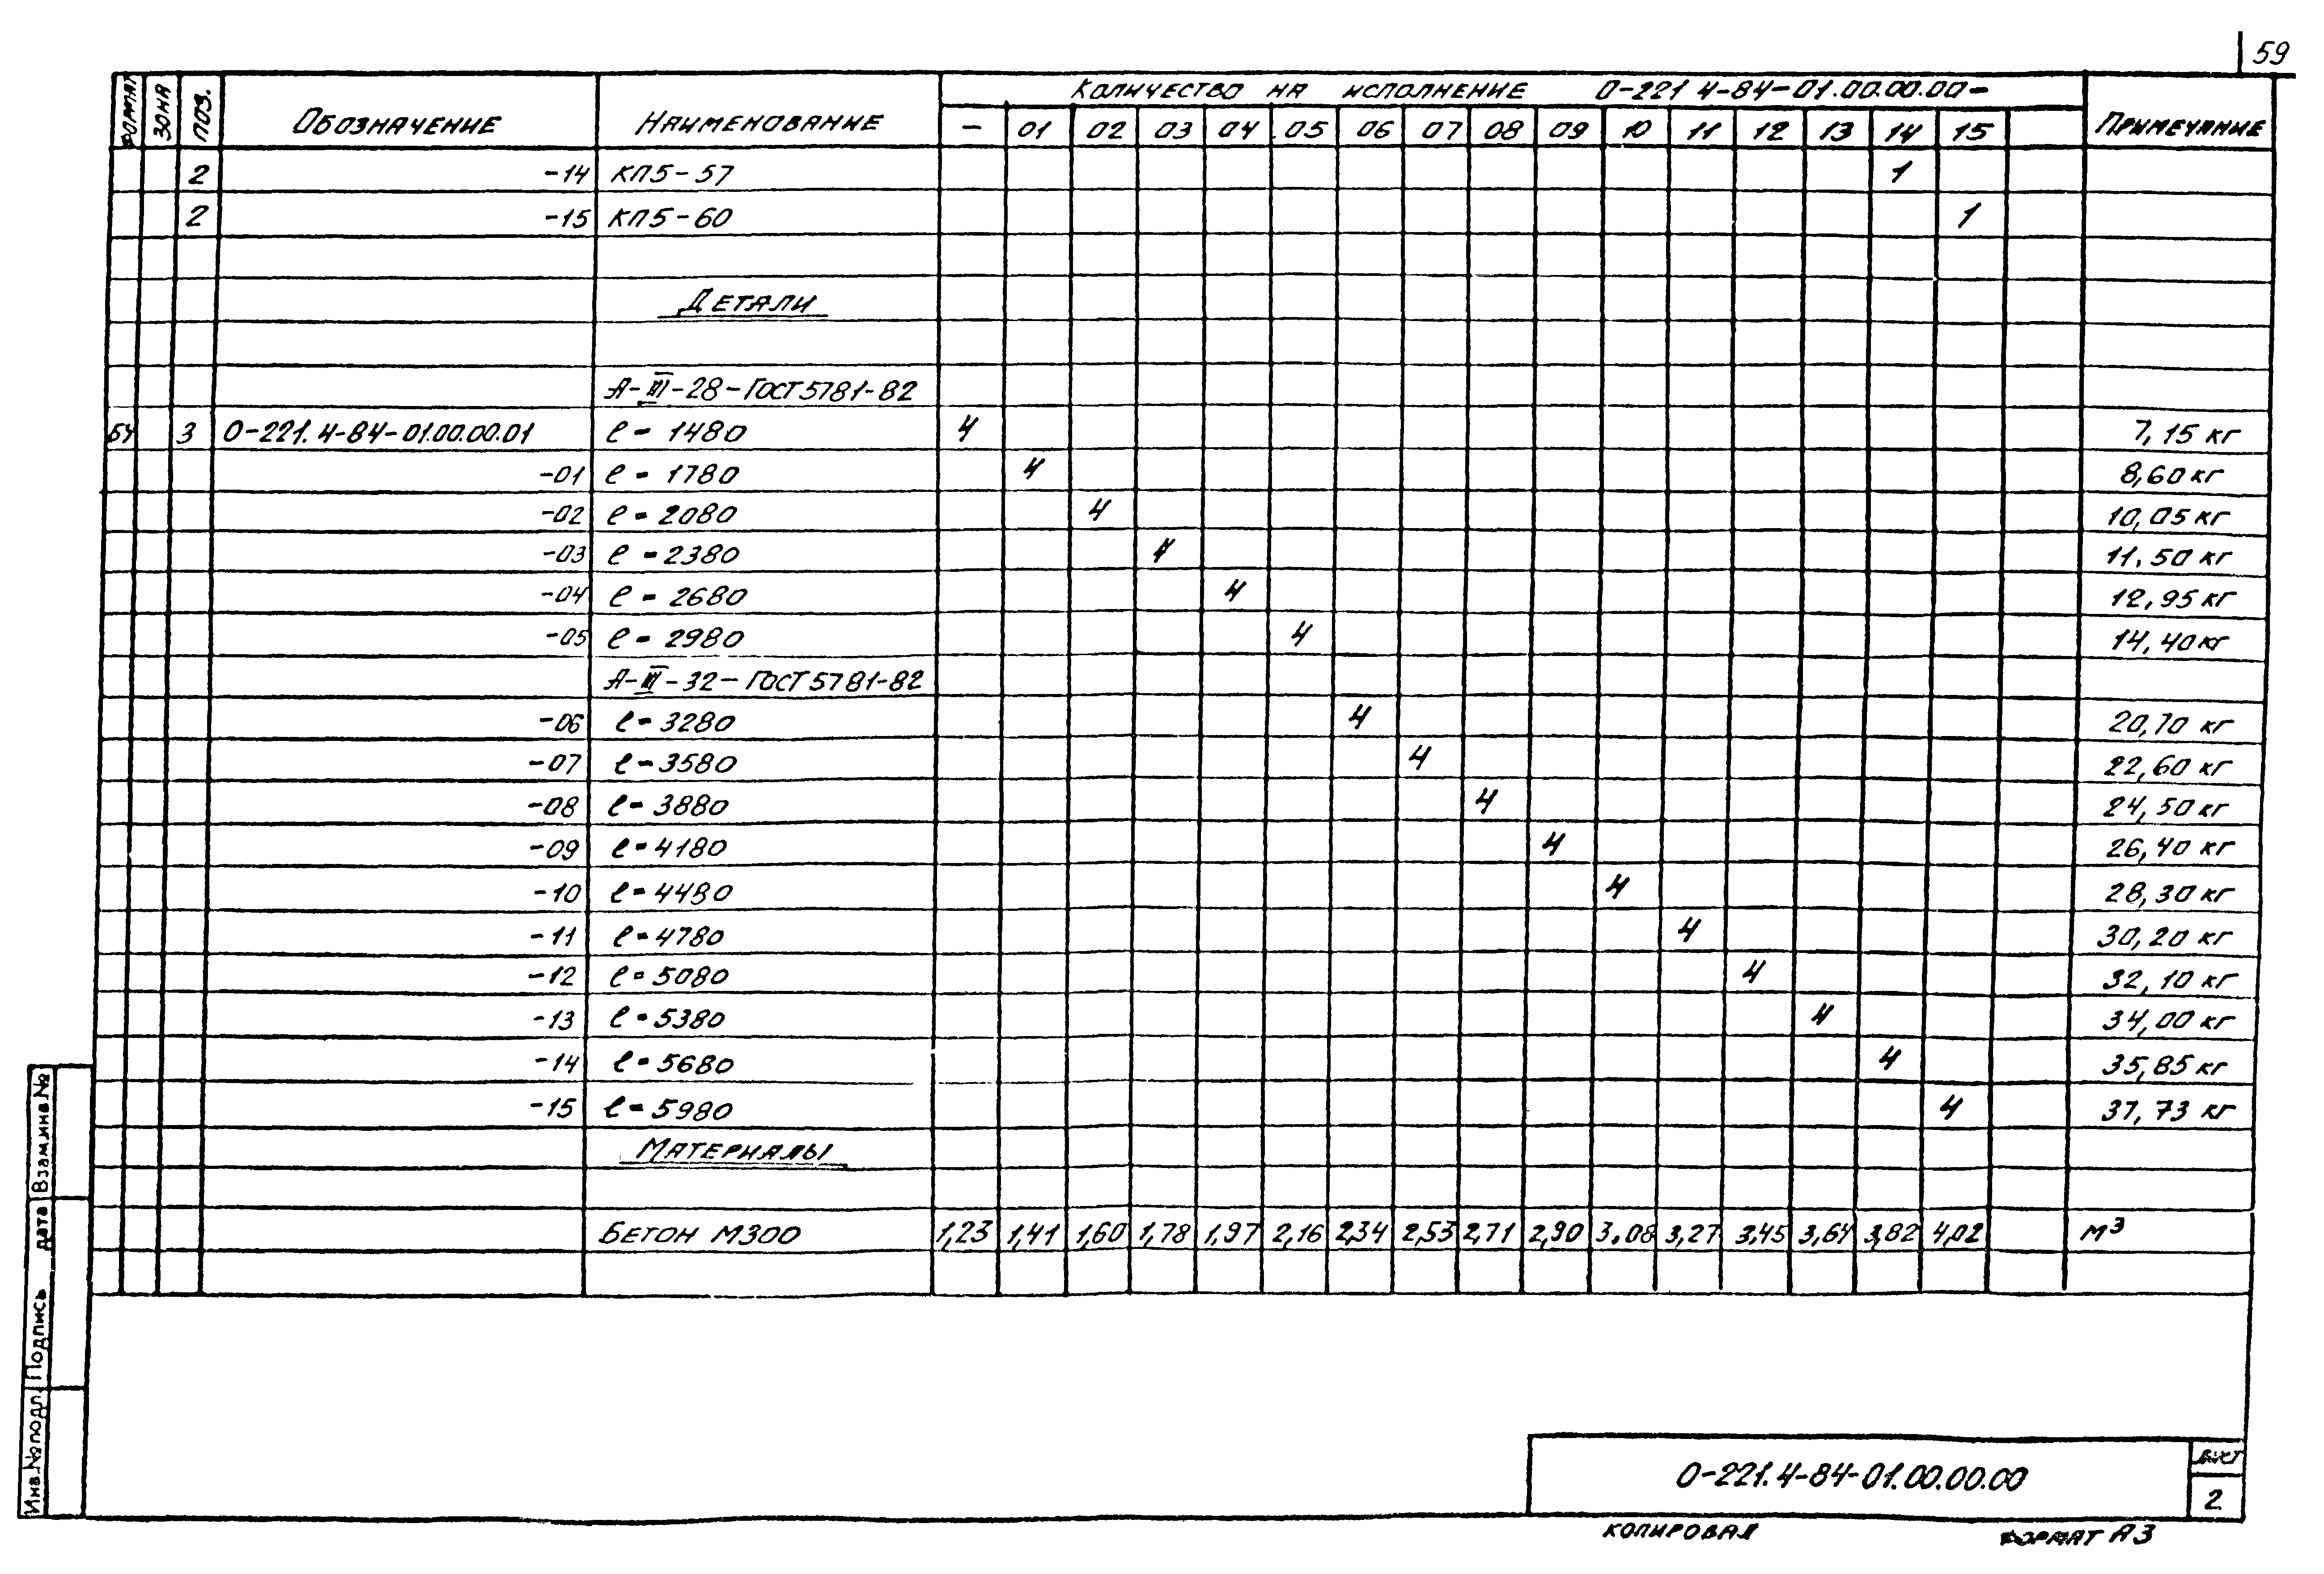 59
ФОРМАТ ЗОНА ПОЗ. ОБОЗНАЧЕНИЕ НАИМЕНОВАНИЕ КОЛИЧЕСТВО НА ИСПОЛНЕНИЕ О-221 4-84-01.00.00.00- ПРИМЕЧАНИЕ
- 01 02 03 04 05 06 07 08 09 10 11 12 13 14 15
2 -14 КП5-57 1
2 -15 КП5-60 1
ДЕТАЛИ
А-III-28-ГОСТ5781-82
БЧ 3 О-221.4-84-01.00.00.01 ℓ = 1480 4 7,15 кг
-01 ℓ = 1780 4 8,60 кг
-02 ℓ = 2080 4 10,05 кг
-03 ℓ = 2380 4 11.50 кг
-04 ℓ = 2680 4 12,95 кг
-05 ℓ = 2980 4 14,40 кг
А-III-32-ГОСТ5781-82
-06 ℓ = 3280 4 20,70 кг
-07 ℓ = 3580 4 22,60 кг
-08 ℓ = 3880 4 24,50 кг
-09 ℓ = 4180 4 26,40 кг
-10 ℓ = 4480 4 28,30 кг
-11 ℓ = 4780 4 30,20 кг
-12 ℓ = 5080 4 32,10 кг
-13 ℓ = 5380 4 34,00 кг
-14 ℓ = 5680 4 35,85 кг
-15 ℓ = 5980 4 37,73 кг
МАТЕРИАЛЫ
БЕТОН М300 1,23 1,41 1,60 1,78 1,97 2,16 2,34 2,53 2,71 2,90 3.08 3,27 3,45 3,64 3,82 4,02 м³
Инв.№подл. Подпись дата Взам.инв.№
О-221.4-84-01.00.00.00
ЛИСТ
2
КОПИРОВАЛ ФОРМАТ А3